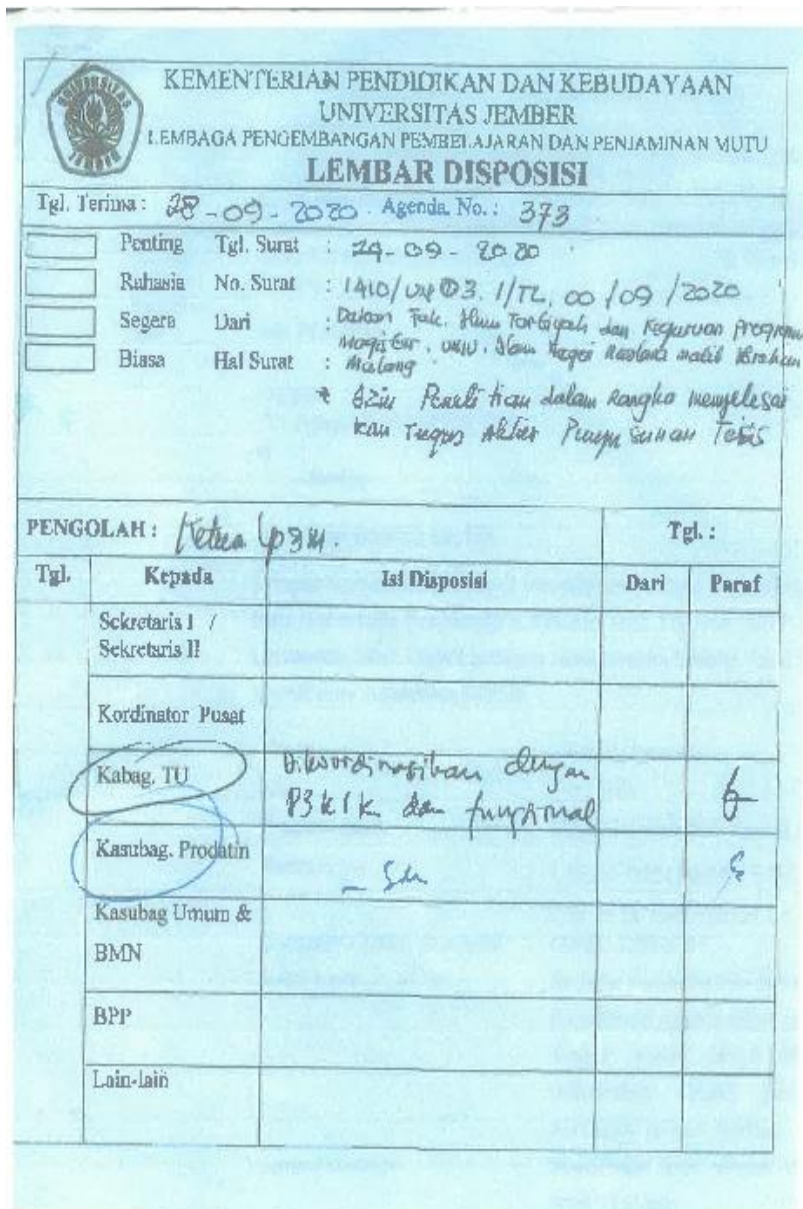 UNIVERSITAS JEMBER
KEMENTERIAN PENDIDIKAN DAN KEBUDAYAAN
UNIVERSITAS JEMBER
LEMBAGA PENGEMBANGAN PEMBELAJARAN DAN PENJAMINAN MUTU
LEMBAR DISPOSISI
Tgl. Terima : 28-09-2020 Agenda No. : 373
Penting Tgl. Surat : 24-09-2020
Rahasia No. Surat : 1410/Un.03.1/TL.00/09/2020
Segera Dari : Dekan Fak. Ilmu Tarbiyah dan Keguruan Program
Magister. UIN. Islam Negeri Maulana Malik Ibrahim
Biasa Hal Surat : Malang
* Izin Penelitian dalam Rangka menyelesai
kan Tugas Akhir Penyusunan Tesis
PENGOLAH : Ketua LP3M. Tgl. :
Tgl. Kepada Isi Disposisi Dari Paraf
Sekretaris I /
Sekretaris II
Kordinator Pusat
Kabag. TU Dikoordinasikan dengan
P3KIK dan fungsional
Kasubag. Prodatin
Kasubag Umum &
BMN
BPP
Lain-lain